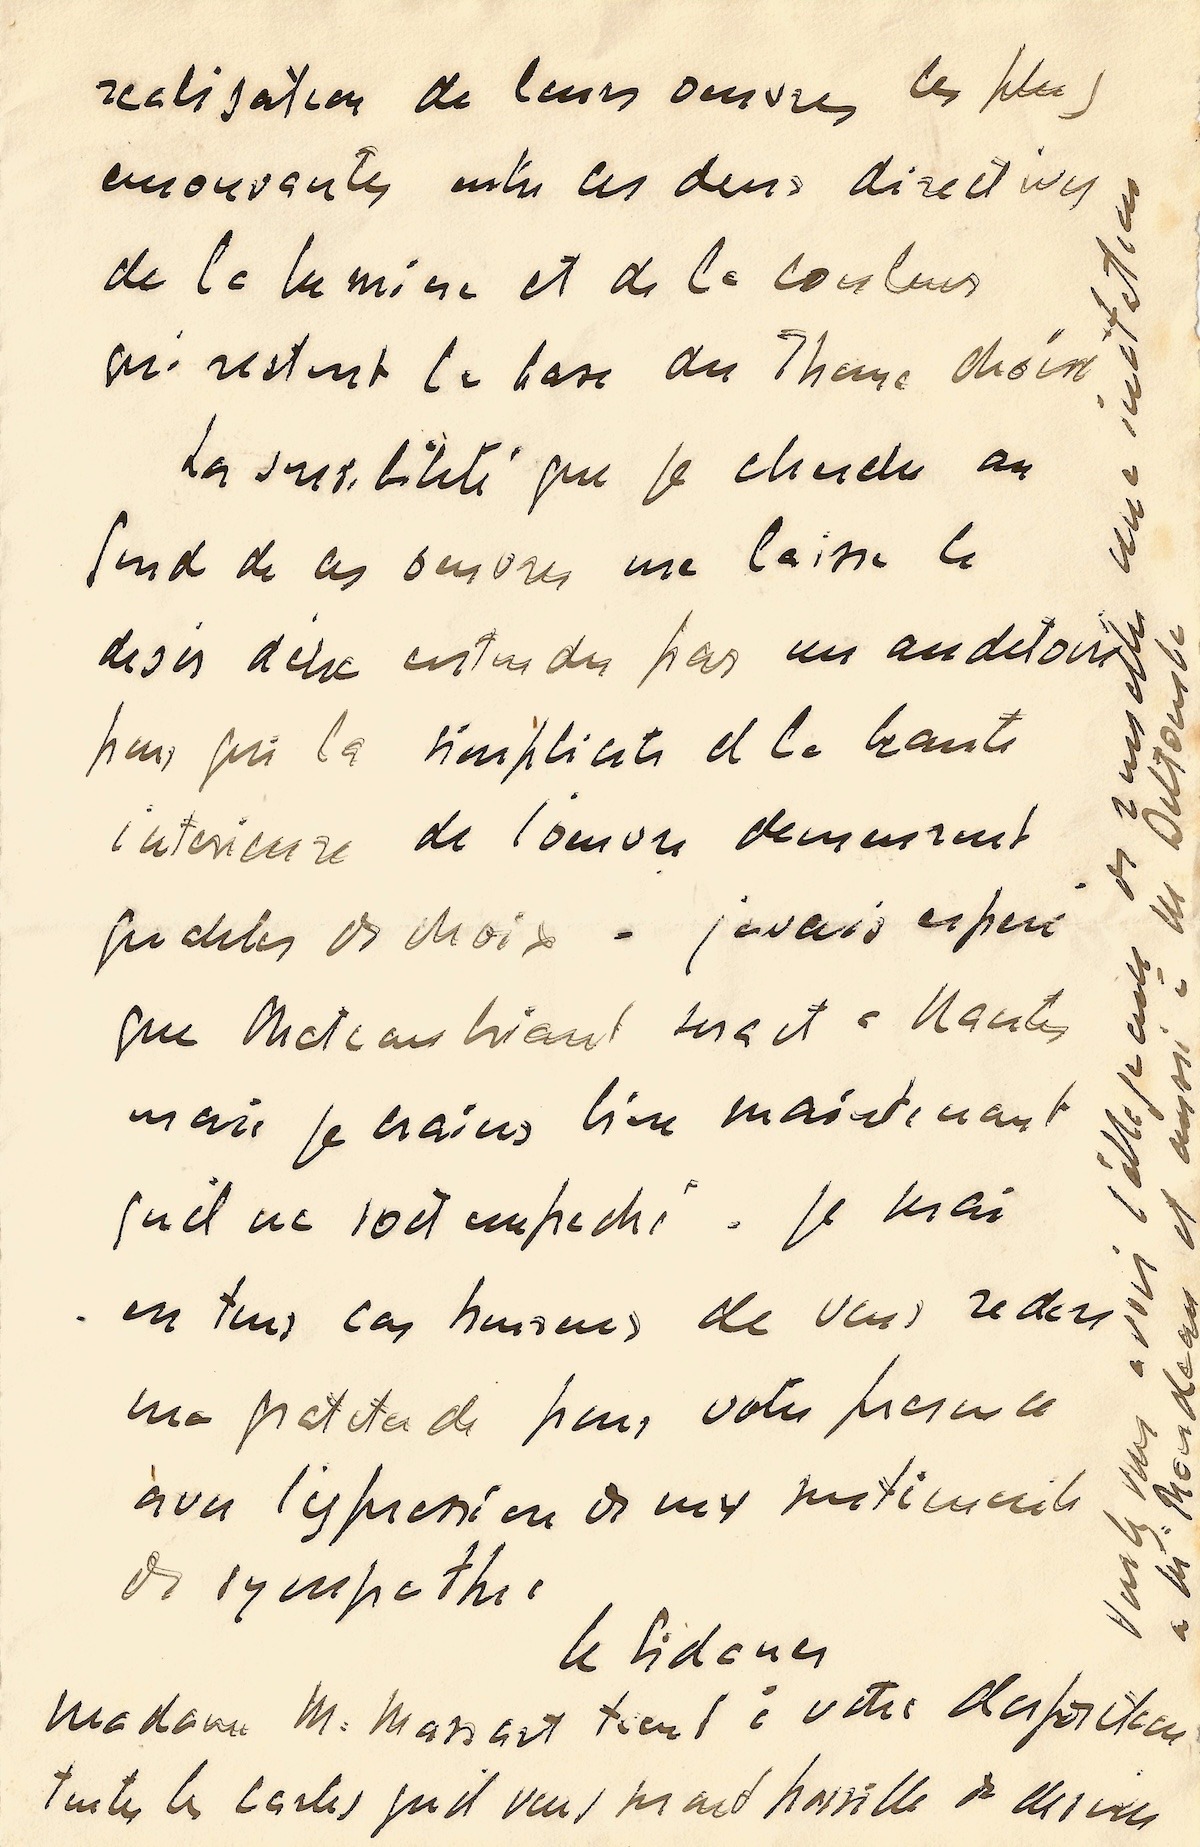 realisation de leurs oeuvres les plus
emouvantes entre ces deux directives
de la lumiere et de la couleur
qui restent la base du Theme choisi
La sensibilité que je cherche au
fond de ces oeuvres me laisse le
desir d'être entendu par un auditoire
pour qui la simplicite et la beaute
interieure de l'oeuvre demeurent
que dites de choix - j'avais esperé
que Chateaubriant serait a Nantes
mais je crains bien maintenant
qu'il ne soit empeché. je serai
en tous cas heureux de vous redire
ma gratitude pour votre presence
avec l'expression de mes sentiments
de sympathie
le Sidaner
Madame M. Massart tient à votre disposition
toutes les cartes qu'il vous serait possible de
Voulez vous avoir l'obligeance de remettre une invitation
a Mr et aussi à Mr Deltombe